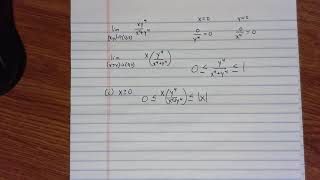 lim (x,y)→(0,0) xy⁴/(x⁴+y⁴)
x=0 y=0
0/y⁴=0 0/x⁴=0
lim (x,y)→(0,0) x(y⁴/(x⁴+y⁴))
0 ≤ y⁴/(x⁴+y⁴) ≤ 1
x=0 0 ≤ x(y⁴/(x⁴+y⁴)) ≤ |x|